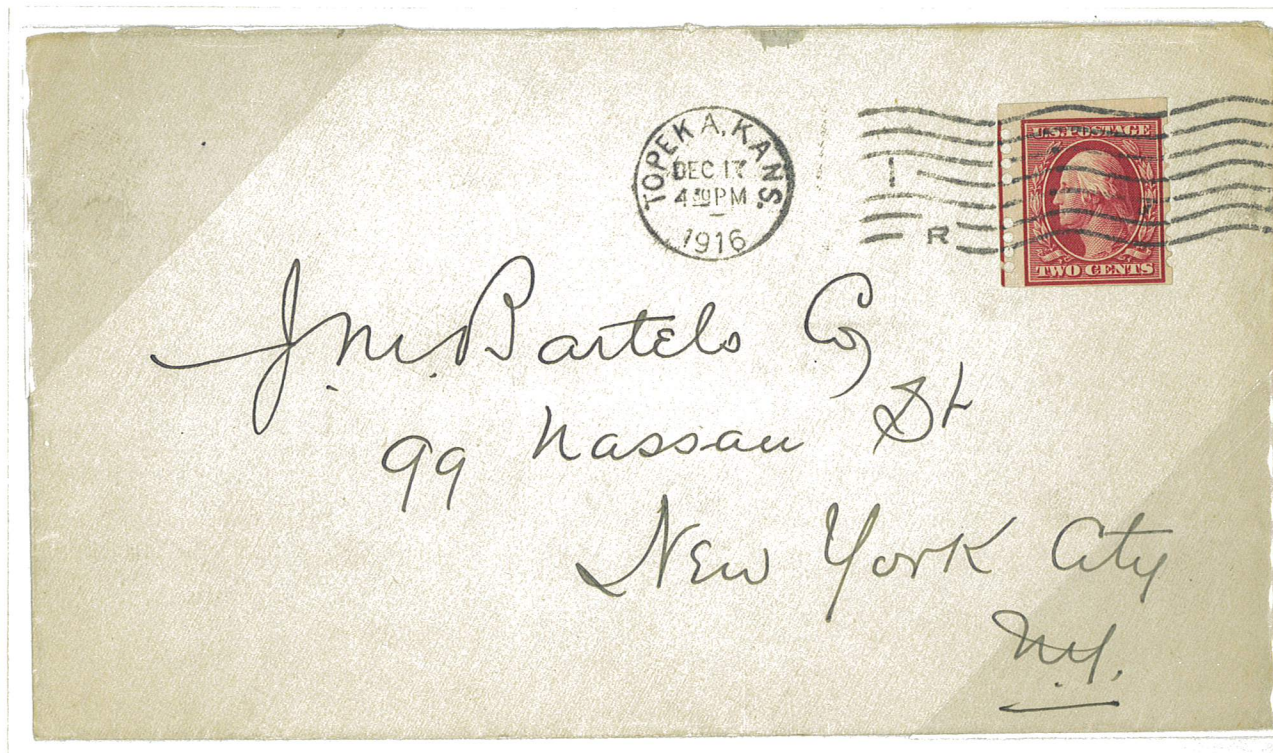 TOPEKA, KANS.
DEC 17
4 30 PM
1916
1
R
U.S. POSTAGE
TWO CENTS
J. M. Bartels Co
99 Nassau St
New York City
N.Y.